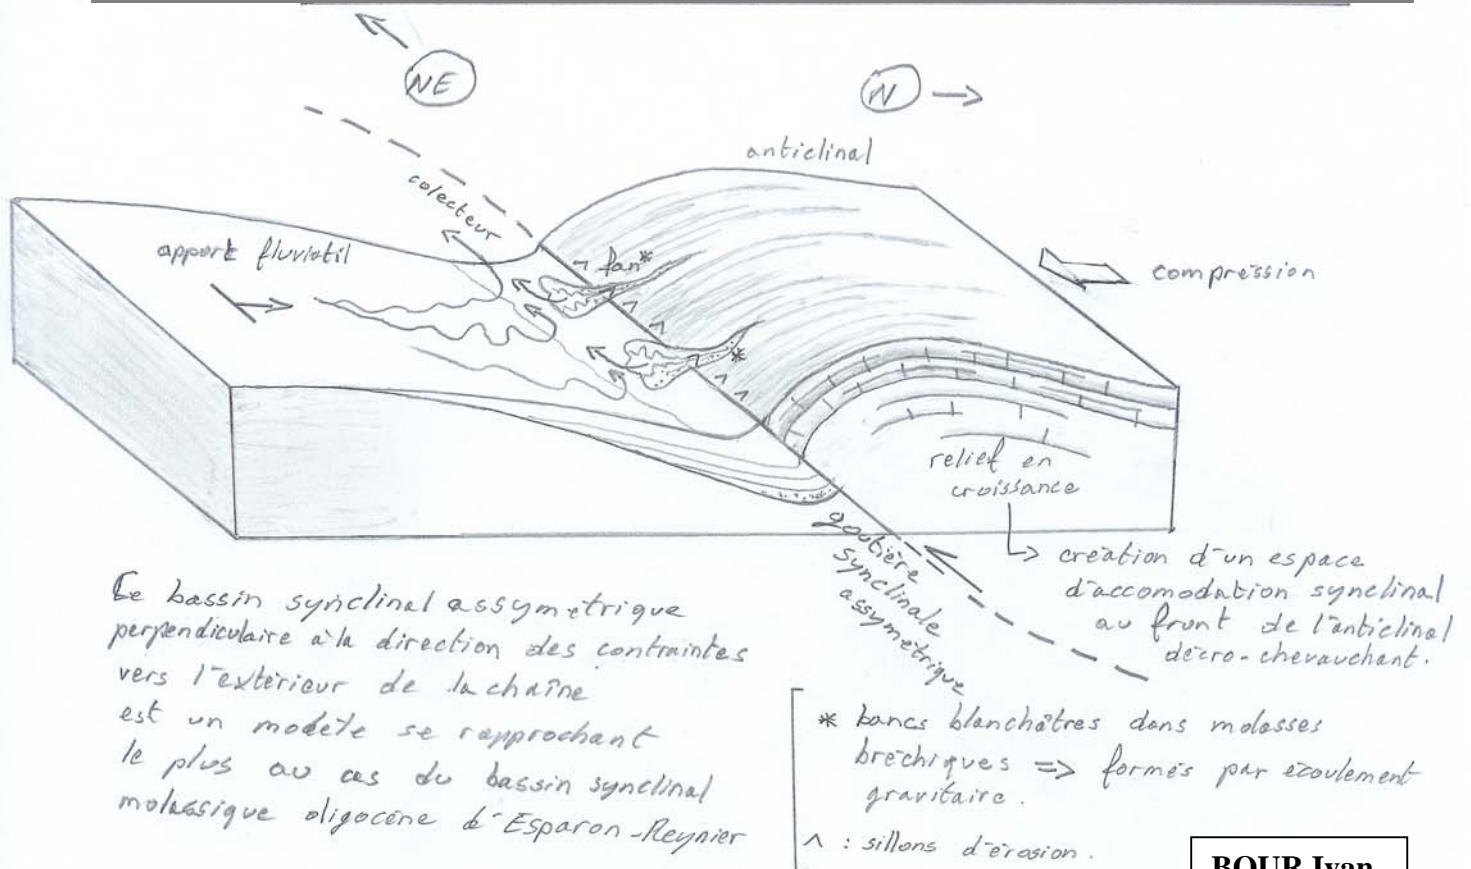 NE
N
anticlinal
colecteur
apport fluviatil
fan*
compression
*
relief en
croissance
goutière
synclinale
assymétrique
création d'un espace
d'accomodation synclinal
au front de l'anticlinal
décro-chevauchant.
Le bassin synclinal assymétrique
perpendiculaire à la direction des contraintes
vers l'extérieur de la chaîne
est un modèle se rapprochant
le plus au cas du bassin synclinal
molassique oligocène d'Esparon-Reynier
* bancs blanchâtres dans molasses
bréchiques => formés par écoulement
gravitaire.
^ : sillons d'érosion.
BOUR Ivan